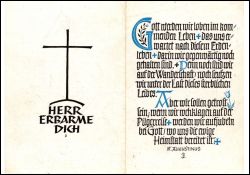 HERR
ERBARME
DICH
Gott werden wir loben im kom-
menden Leben + das uns er-
wartet nach diesem Erden-
leben + darin wir gegenwärtig noch
gehalten sind. + Denn noch sind wir
auf der Wanderschaft + noch seufzen
wir unter der Last dieses sterblichen
Leibes.
Aber wir sollen getrost
sein, wenn wir wehklagen auf der
Pilgerreise + werden wir aufjubeln
bei Gott, wo uns die ewige
Heimstatt bereitet ist +
H. AUGUSTINUS